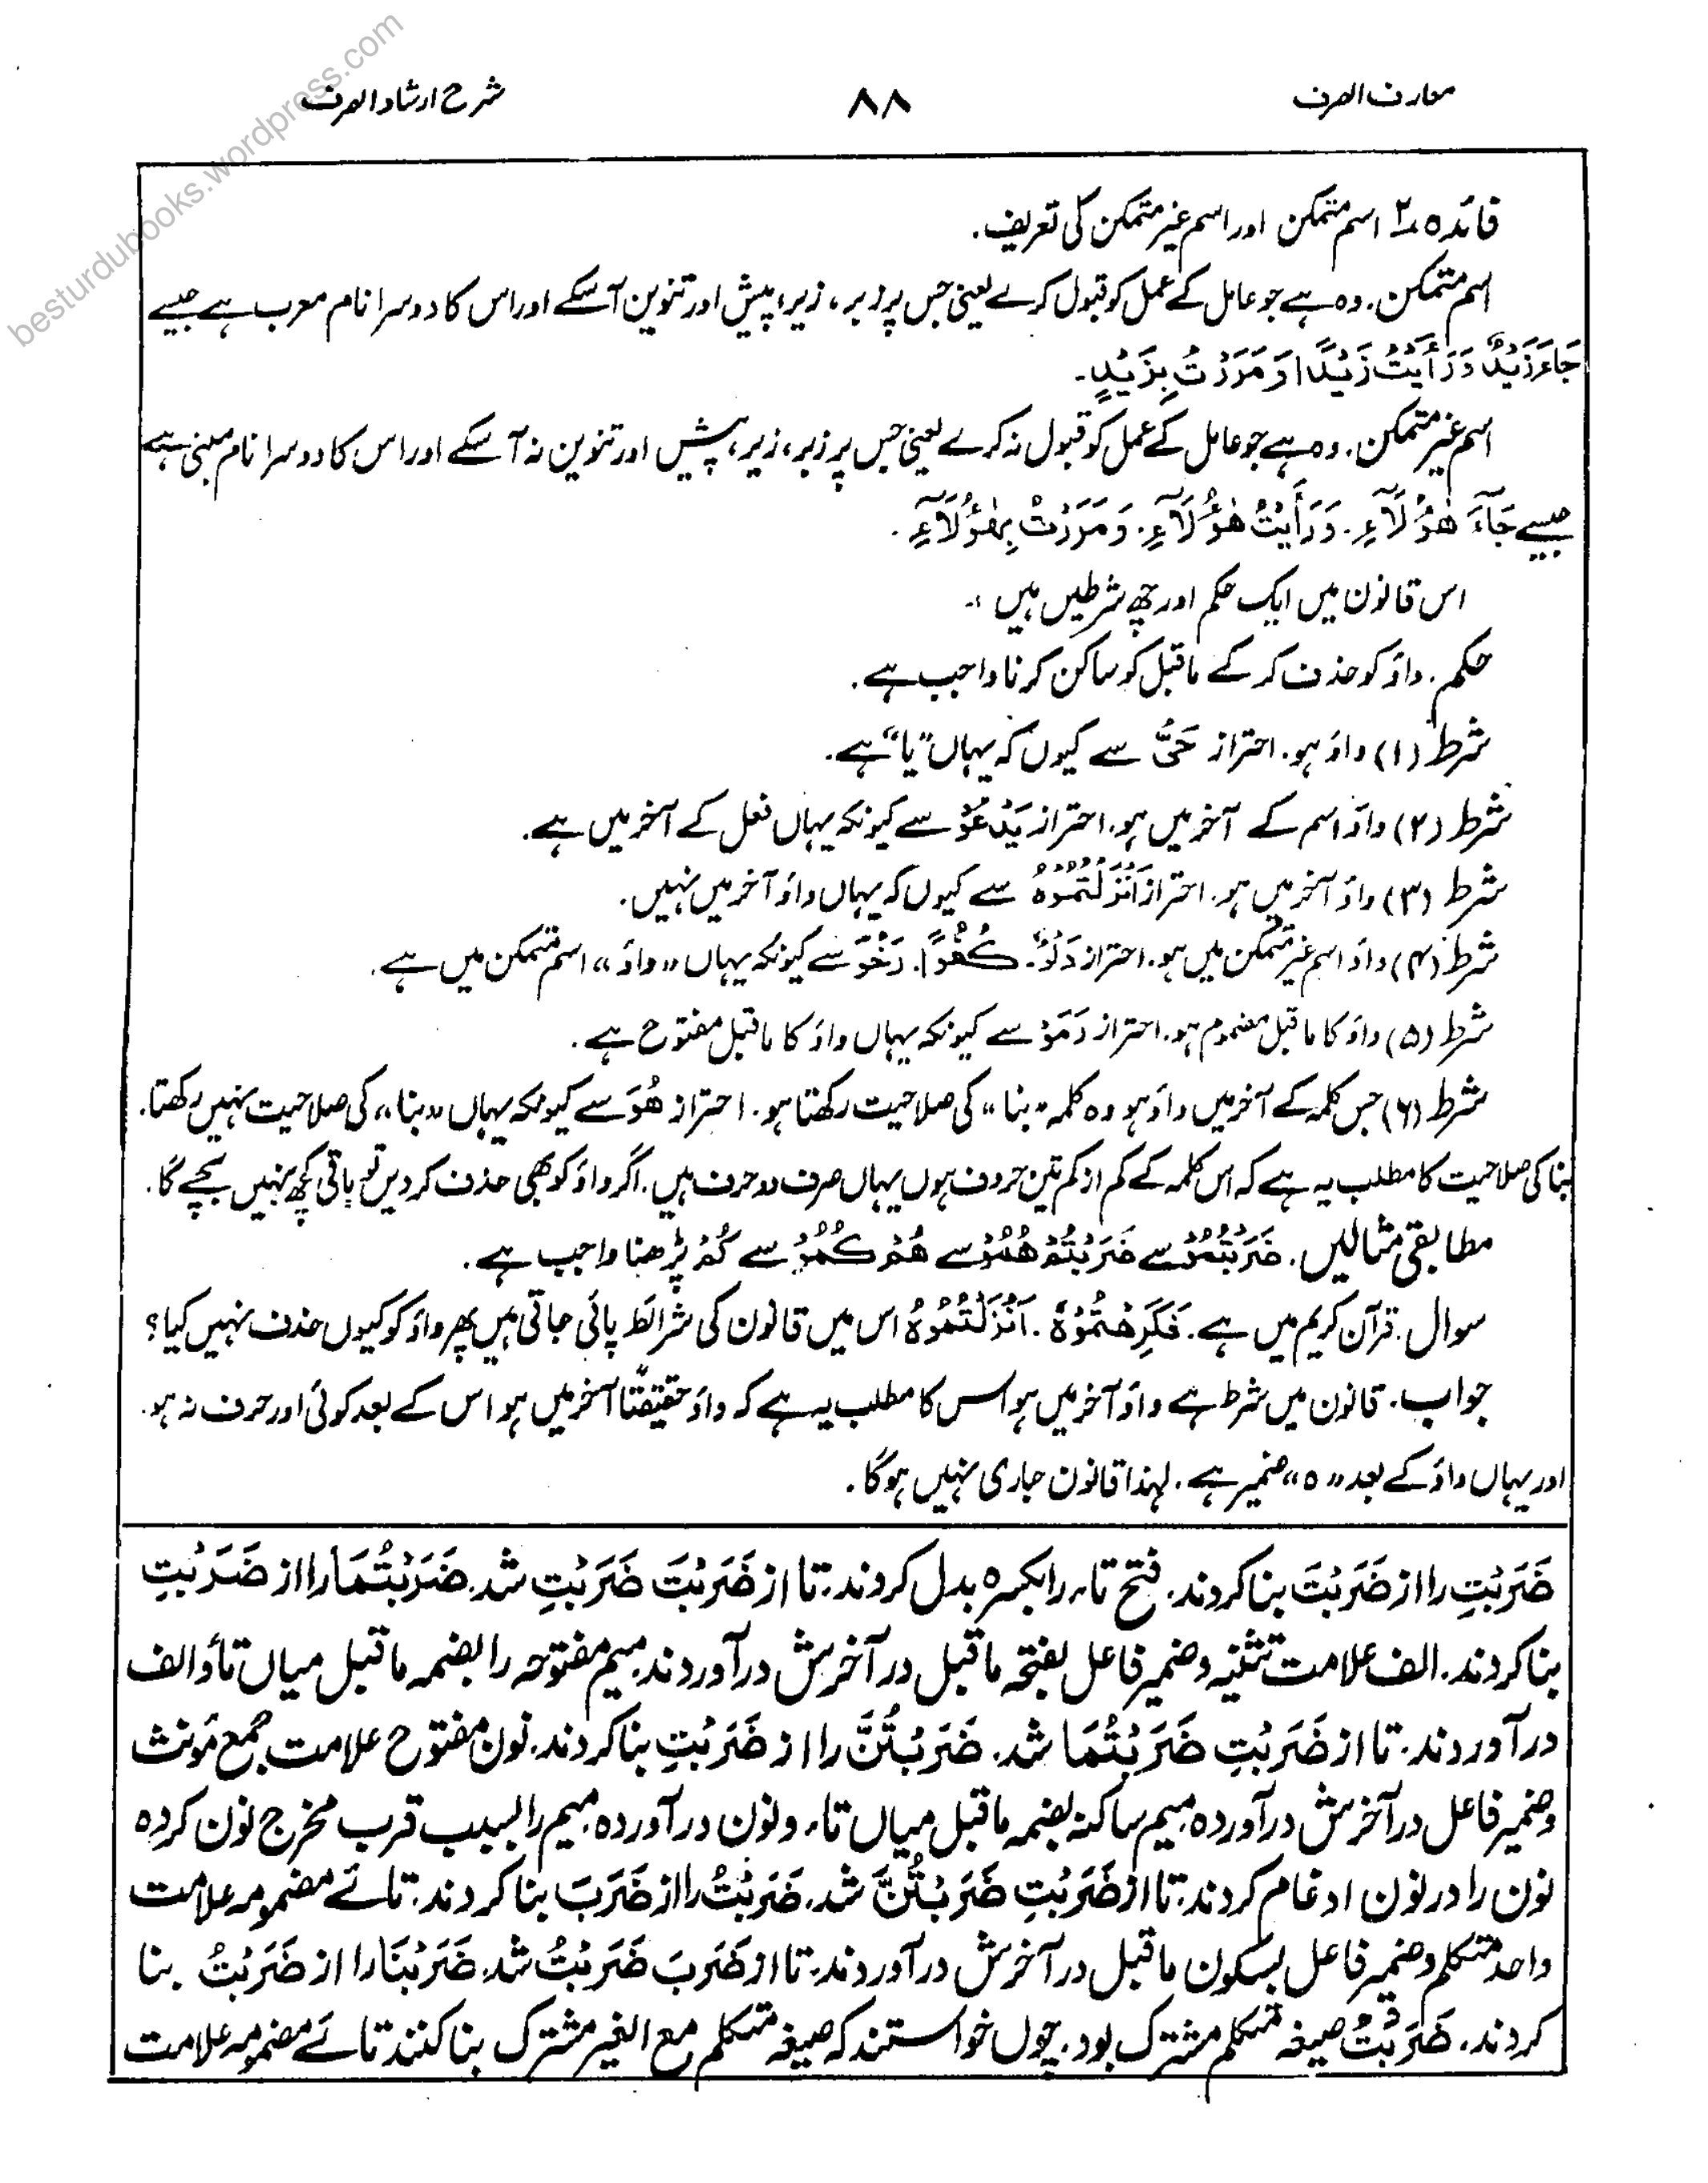 معارف الصرف
۸۸
شرح ارشاد الصرف
besturdubooks.wordpress.com
فائدہ ۲ اسم متمکن اور اسم غیر متمکن کی تعریف۔
اسم متمکن۔ وہ ہے جو عامل کے عمل کو قبول کرے یعنی جس پر زبر، زیر، پیش اور تنوین آسکے اور اس کا دوسرا نام معرب ہے جیسے
جَاءَ زَيْدٌ وَرَأَيْتُ زَيْدًا وَ مَرَرْتُ بِزَيْدٍ۔
اسم غیر متمکن۔ وہ ہے جو عامل کے عمل کو قبول نہ کرے یعنی جس پر زبر، زیر، پیش اور تنوین نہ آسکے اور اس کا دوسرا نام مبنی ہے
جیسے جَآءَ هٰؤُلَآءِ۔ وَرَأَيْتُ هٰؤُلَآءِ۔ وَمَرَرْتُ بِهٰؤُلَآءِ۔
اس قانون میں ایک حکم اور چھ شرطیں ہیں :۔
حکم۔ واؤ کو حذف کر کے ماقبل کو ساکن کرنا واجب ہے۔
شرط (۱) واؤ ہو۔ احتراز حَیُّ سے کیوں کہ یہاں "یا" ہے۔
شرط (۲) واؤ اسم کے آخر میں ہو۔ احتراز يَدْعُوْ سے کیونکہ یہاں فعل کے آخر میں ہے۔
شرط (۳) واؤ آخر میں ہو۔ احتراز اَنْزَلْتُمُوْهُ سے کیوں کہ یہاں واؤ آخر میں نہیں۔
شرط (۴) واؤ اسم غیر متمکن میں ہو۔ احتراز دَلْوٌ۔ كُفْوًا۔ رَخْوَ سے کیونکہ یہاں "واؤ" اسم متمکن میں ہے۔
شرط (۵) واؤ کا ماقبل مضموم ہو۔ احتراز رَمَوْ سے کیونکہ یہاں واؤ کا ماقبل مفتوح ہے۔
شرط (۶) جس کلمہ کے آخر میں واؤ ہو وہ کلمہ "بنا" کی صلاحیت رکھتا ہو۔ احتراز هُوَ سے کیونکہ یہاں "بنا" کی صلاحیت نہیں رکھتا۔
بنا کی صلاحیت کا مطلب یہ ہے کہ اس کلمہ کے کم از کم تین حروف ہوں یہاں صرف دو حرف ہیں۔ اگر واؤ کو بھی حذف کر دیں تو باقی کچھ نہیں بچے گا۔
مطابقی مثالیں۔ ضَرَبْتُمُوْ سے ضَرَبْتُمْ هُمُوْ سے هُمْ كُمُوْ سے كُمْ پڑھنا واجب ہے۔
سوال۔ قرآن کریم میں ہے۔ فَكَرِهْتُمُوْهُ۔ اَنْزَلْتُمُوْهُ اس میں قانون کی شرائط پائی جاتی ہیں پھر واؤ کو کیوں حذف نہیں کیا؟
جواب۔ قانون میں شرط ہے واؤ آخر میں ہو اس کا مطلب یہ ہے کہ واؤ حقیقتًا آخر میں ہو اس کے بعد کوئی اور حرف نہ ہو۔
اور یہاں واؤ کے بعد "ہ" ضمیر ہے۔ لہذا قانون جاری نہیں ہوگا۔
ضَرَبْتِ را از ضَرَبْتَ بنا کردند۔ فتح تاء را بکسرہ بدل کردند۔ تا از ضَرَبْتَ ضَرَبْتِ شد۔ ضَرَبْتُمَا را از ضَرَبْتِ
بنا کردند۔ الف علامت تثنیہ و ضمیر فاعل بفتحہ ماقبل در آخرش درآوردند۔ میم مفتوحہ را بضمہ ماقبل میاں تأ و الف
درآوردند۔ تا از ضَرَبْتِ ضَرَبْتُمَا شد۔ ضَرَبْتُنَّ را از ضَرَبْتِ بنا کردند۔ نون مفتوح علامت جمع مؤنث
و ضمیر فاعل در آخرش درآوردہ میم ساکنہ بضمہ ماقبل میاں تاء و نون درآوردہ میم را بسبب قرب مخرج نون کردہ
نون را در نون ادغام کردند۔ تا از ضَرَبْتِ ضَرَبْتُنَّ شد۔ ضَرَبْتُ را از ضَرَبَ بنا کردند۔ تائے مضمومہ علامت
واحد متکلم و ضمیر فاعل بسکون ماقبل در آخرش درآوردند۔ تا از ضَرَبَ ضَرَبْتُ شد۔ ضَرَبْنَا را از ضَرَبْتُ بنا
کردند۔ ضَرَبْتُ صیغہ متکلم مشترک بود۔ چوں خواستند کہ صیغہ متکلم مع الغیر مشترک بنا کنند تائے مضمومہ علامت